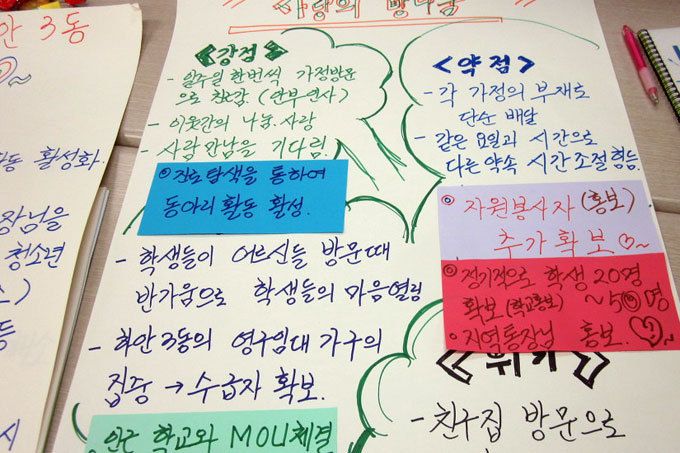 안 3동
활성화
장님을
청소년
동
시
사랑의
<강점>
- 일주일 한번씩 가정방문
으로 친근감. (안부인사)
- 이웃간의 나눔. 사랑
- 사람 만남을 기다림.
◎ 진로탐색을 통하여
동아리 활동 활성.
- 학생들이 어르신들 방문때
반가움으로 학생들의 마음열림
- 하안 3동의 영구임대 가구의
집중 → 수급자 확보.
인근 학교와 MOU체결
<약점>
- 각 가정의 부재로
단순 배달
- 같은 요일과 시간으로
다른 약속 시간조절 힘듬.
◎ 자원봉사자 (홍보)
추가확보 ♡~
◎ 정기적으로 학생 20명
확보 (학교홍보) ~50명
◎ 지역통장님 홍보.
<위기>
- 친구집 방문으로